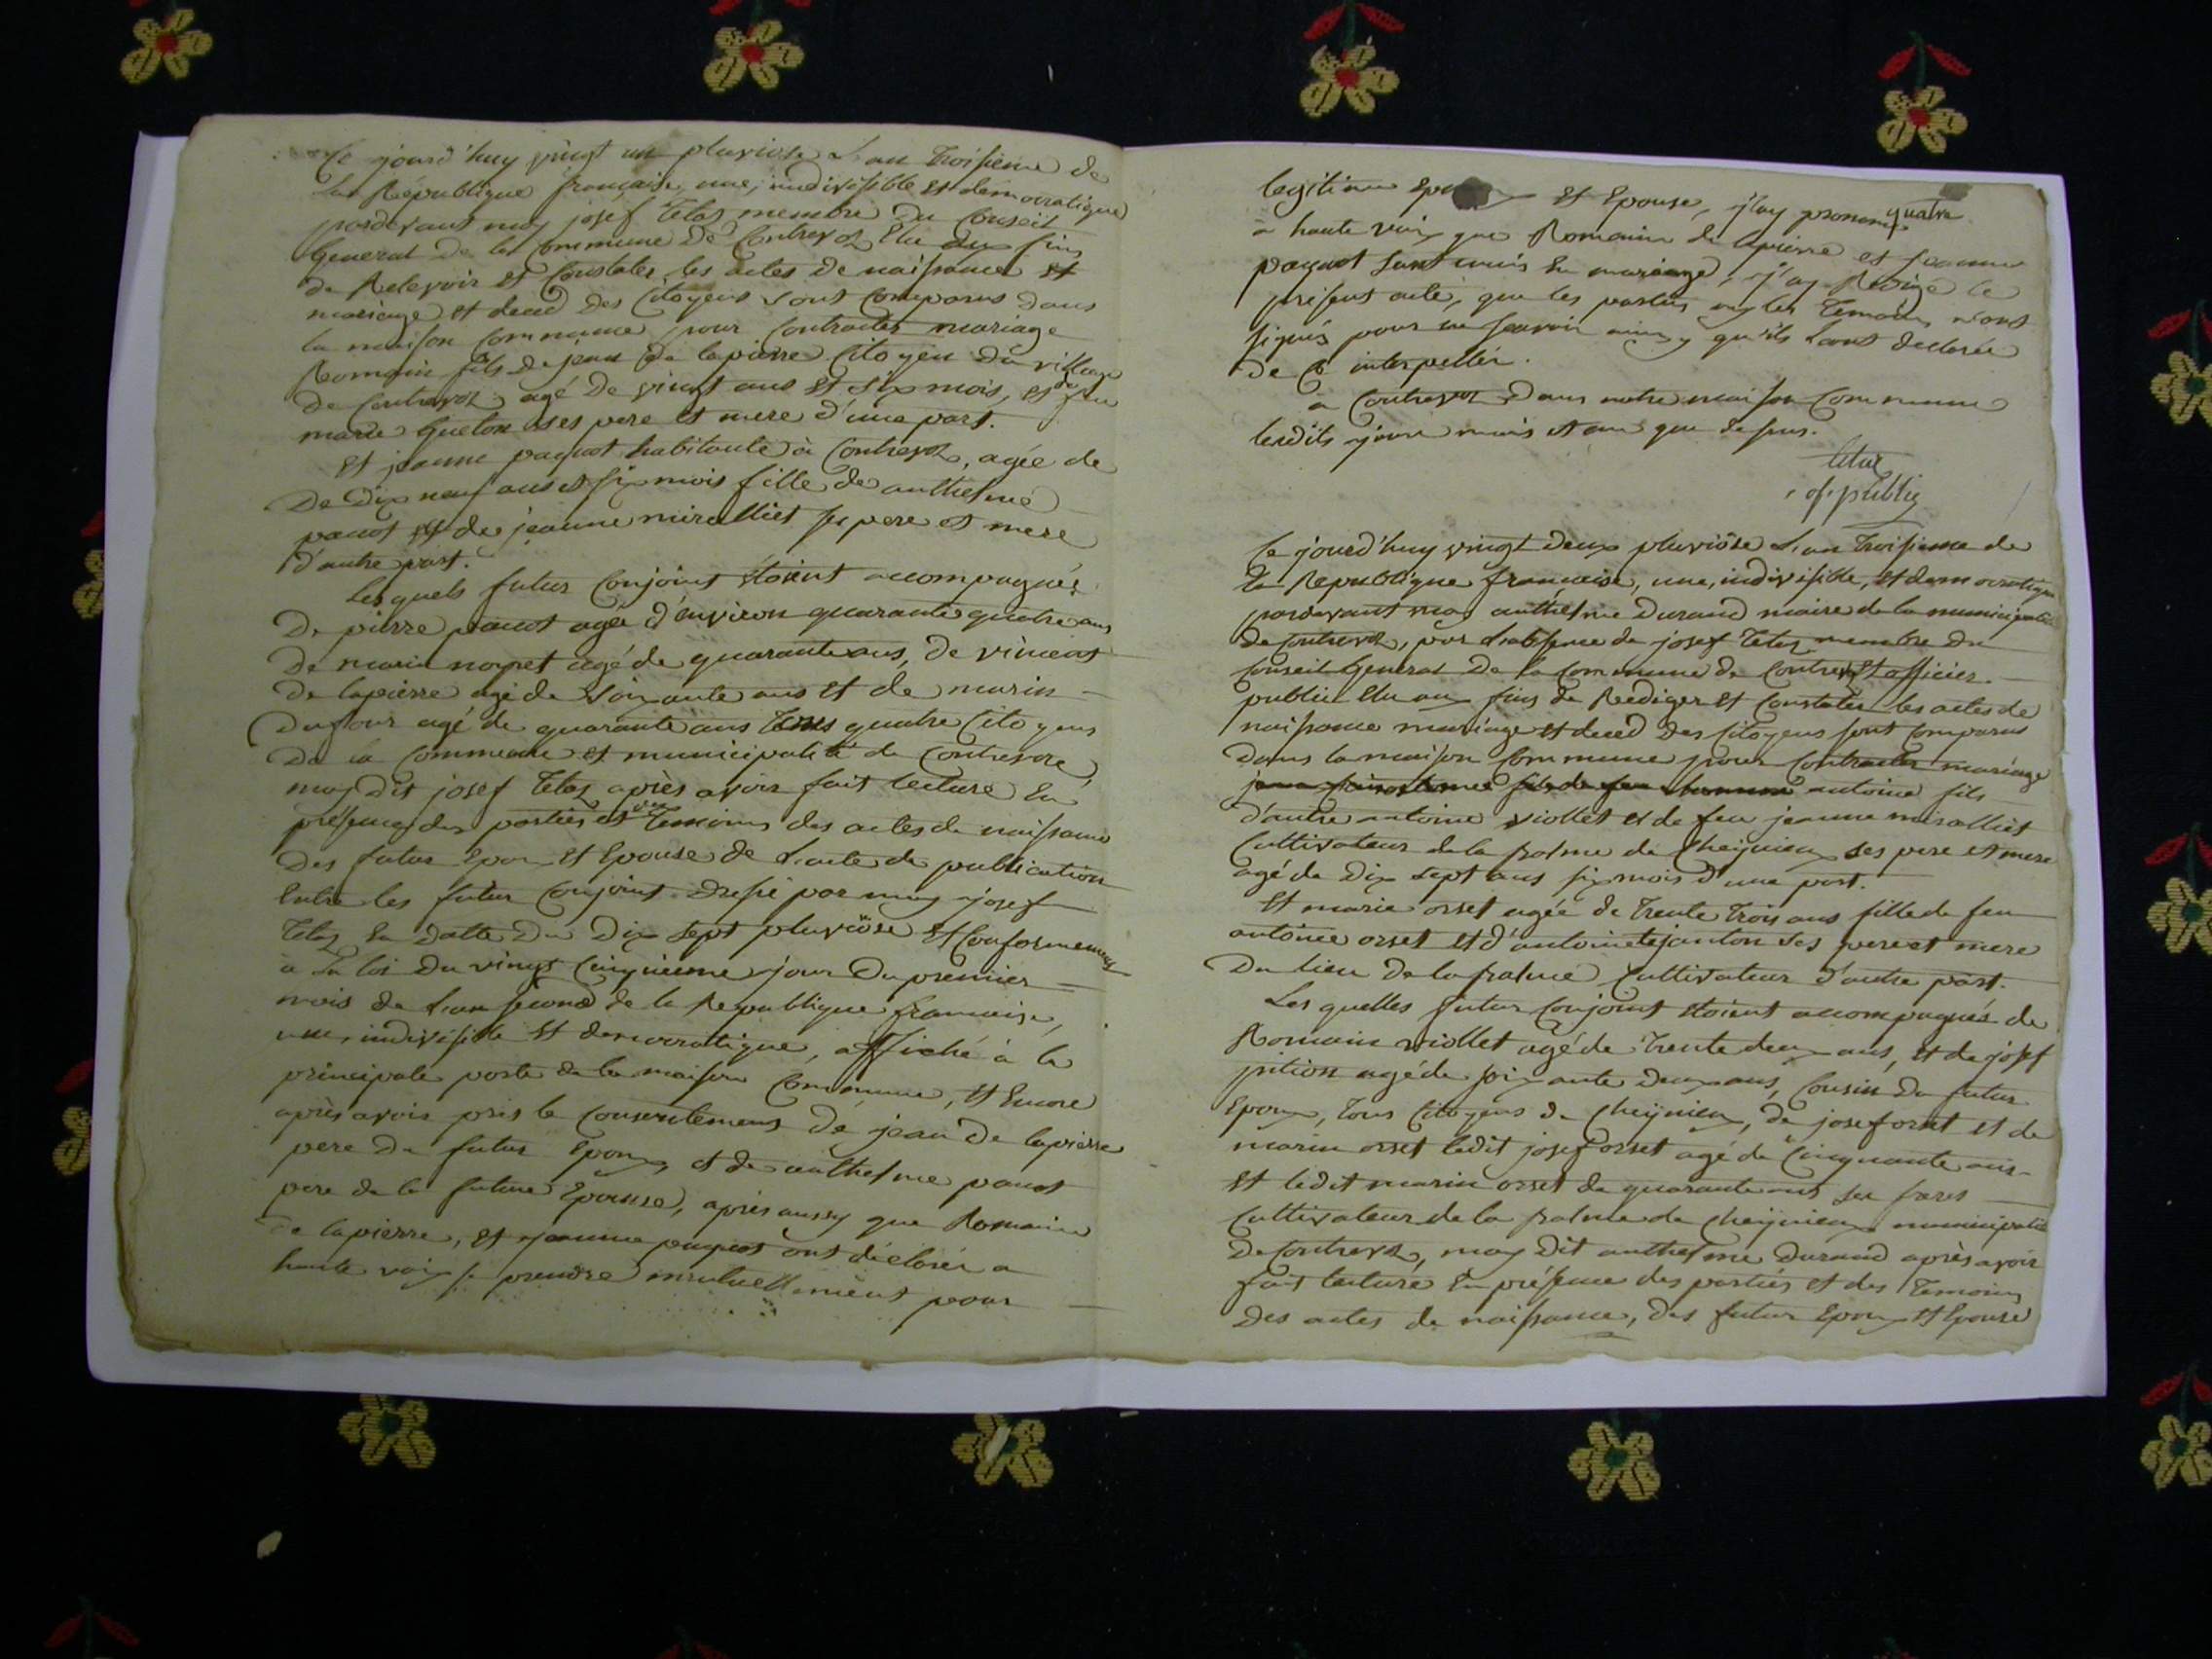 Ce jourd'huy vingt un pluviose L'an troisieme de
La République française, une, indivisible et democratique
pardevant moy josef Telaz membre du Conseil
General de la Commune De Contrevoz Elu aux fins
de Relevoir et Constater les actes de naissance et
mariage et deced des Citoyens sont Comparus dans
la maison Commune pour Contracter mariage
Romain fils de jean de lapierre Citoyen du village
De Contrevoz agé De vingt ans et six mois, et de feu
marie Guelon ses pere et mere d'une part.
Et jeanne paquot habitante à Contrevoz, agée de
De Dix neuf ans et six mois fille de anthelme
pacot et de jeanne miralliet ses pere et mere
d'autre part.
Les quels futur Conjoint étoient accompagnés
De pierre pacot agé d'environ quarante quatre ans
De marin noyret agé de quarante ans, de vincent
De lapierre agé de soixante ans et de marin
Dufour agé de quarante ans tous quatre Citoyens
De la Commune et municipalité de Contrevoz,
moy Dit josef Telaz après avoir fait lecture En
présence des parties et des temoins des actes de naissance
Des futur Epoux et Epouse de L'acte de publication
Entre les futur Conjoint Dressé par moy josef
Telaz En Datte Du Dix sept pluviôse et Conformement
a La loi du vingt Cinquieme jour Du premier
mois de L'an second de la Republique francaise,
une, indivisible et democratique, affiché à la
principale porte de la maison Commune, et Encore
après avoir pris le Consentement De jean De lapierre
pere Du futur Epoux, et de anthelme pacot
pere de la future Epouse, après aussy que Romain
De lapierre, et jeanne paquot ont déclarés a
haute voix se prendre mutuellement pour
quatre
legitime Epoux et Epouse, j'ay prononcé
a haute voix que Romain de lapierre et jeanne
paquot sont unis En mariage, j'ay Redigé le
présent acte, que les parties ny les temoins n'ont
signés pour ne scavoir ainsy qu'ils L'ont declarés
De Ce interpellés.
a Contrevoz Dans notre maison Commune
lesdits jour mois et an que dessus.
Telaz
of. public
Ce jourd'huy vingt Deux pluviôse L'an troisieme de
La Republique francaise, une, indivisible, et democratique
pardevant moy anthelme Durand maire de la municipalité
De Contrevoz, par L'absence de josef Telaz membre du
Conseil General De la Commune de Contrevoz et officier
public Elu aux fins de Rediger et Constater les actes de
naissance mariage et deced des Citoyens sont Comparus
Dans la maison Commune pour Contracter mariage
antoine fils
d'autre antoine viollet et de feu jeanne miralliet
Cultivateur de la palme de Cheignieux ses pere et mere
agé de Dix sept ans six mois d'une part.
Et marie orset agée de trente trois ans fille de feu
antoine orset et d'antoinete janton ses pere et mere
Du lieu De la palme Cultivateur d'autre part.
Les quelles futur Conjoint étoient accompagnés de
Romain viollet agé de trente deux ans, et de josef
jution agé de soixante deux ans, Cousin Du futur
Epoux, tous Citoyens de Cheignieux, de josef orset et de
marin orset ledit josef orset agé de Cinquante ans
et ledit marin orset de quarante ans ses freres
Cultivateur de la palme de Cheignieux municipalité
De Contrevoz, moy Dit anthelme Durand après avoir
fait lecture En présence des parties et des temoins
Des actes de naissance, des futur Epoux et Epouse